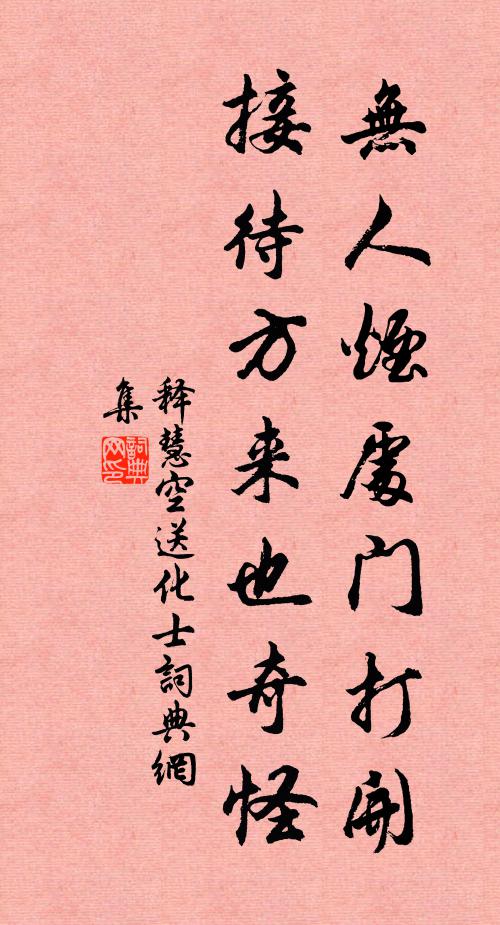 無人煙處門打開
接待方来也奇怪
释慧空送化士詞典網
集
詞典网印